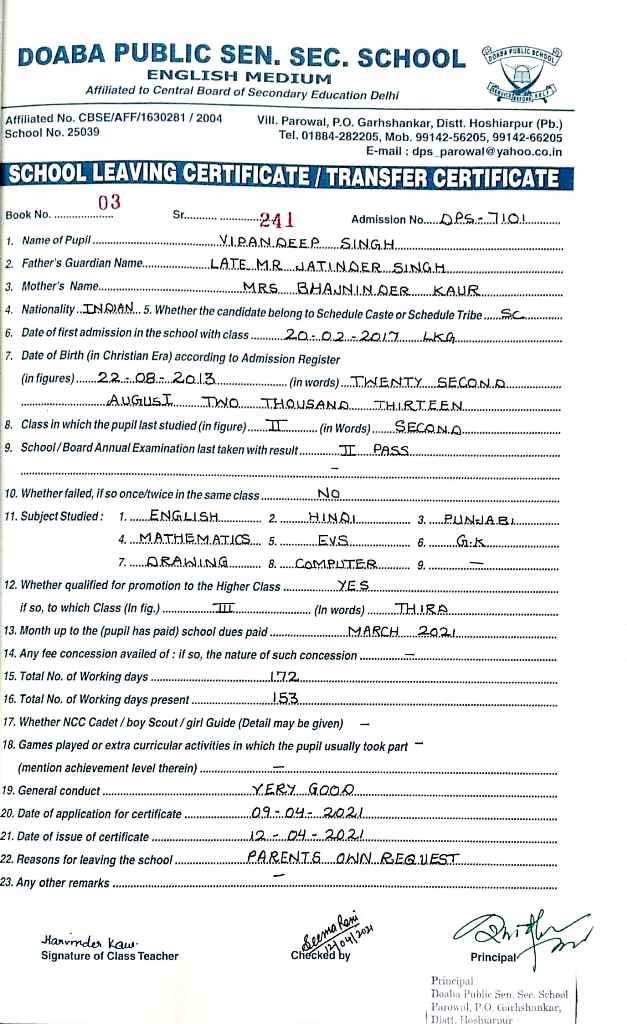 DOABA PUBLIC SEN. SEC. SCHOOL
ENGLISH MEDIUM
Affiliated to Central Board of Secondary Education Delhi
DOABA PUBLIC SCHOOL
Affiliated No. CBSE/AFF/1630281 / 2004
School No. 25039
Vill. Parowal, P.O. Garhshankar, Distt. Hoshiarpur (Pb.)
Tel. 01884-282205, Mob. 99142-56205, 99142-66205
E-mail : dps_parowal@yahoo.co.in
SCHOOL LEAVING CERTIFICATE / TRANSFER CERTIFICATE
Book No. 03 Sr. 241 Admission No. DPS-7101
1. Name of Pupil VIPANDEEP SINGH
2. Father's Guardian Name LATE MR JATINDER SINGH
3. Mother's Name MRS BHAJNINDER KAUR
4. Nationality INDIAN 5. Whether the candidate belong to Schedule Caste or Schedule Tribe SC
6. Date of first admission in the school with class 20-02-2017 LKG
7. Date of Birth (in Christian Era) according to Admission Register
(in figures) 22-08-2013 (in words) TWENTY SECOND
AUGUST TWO THOUSAND THIRTEEN
8. Class in which the pupil last studied (in figure) II (in Words) SECOND
9. School / Board Annual Examination last taken with result II PASS
–
10. Whether failed, if so once/twice in the same class NO
11. Subject Studied : 1. ENGLISH 2. HINDI 3. PUNJABI
4. MATHEMATICS 5. EVS 6. G.K
7. DRAWING 8. COMPUTER 9. —
12. Whether qualified for promotion to the Higher Class YES
if so, to which Class (In fig.) III (In words) THIRD
13. Month up to the (pupil has paid) school dues paid MARCH 2021
14. Any fee concession availed of : if so, the nature of such concession –
15. Total No. of Working days 172
16. Total No. of Working days present 153
17. Whether NCC Cadet / boy Scout / girl Guide (Detail may be given) –
18. Games played or extra curricular activities in which the pupil usually took part –
(mention achievement level therein) –
19. General conduct VERY GOOD
20. Date of application for certificate 09-04-2021
21. Date of issue of certificate 12-04-2021
22. Reasons for leaving the school PARENTS OWN REQUEST
23. Any other remarks –
Harvinder Kaur
Signature of Class Teacher
Seema Rani
12/04/2021
Checked by
Principal
Principal
Doaba Public Sen. Sec. School
Parowal, P.O. Garhshankar,
Distt. Hoshiarpur